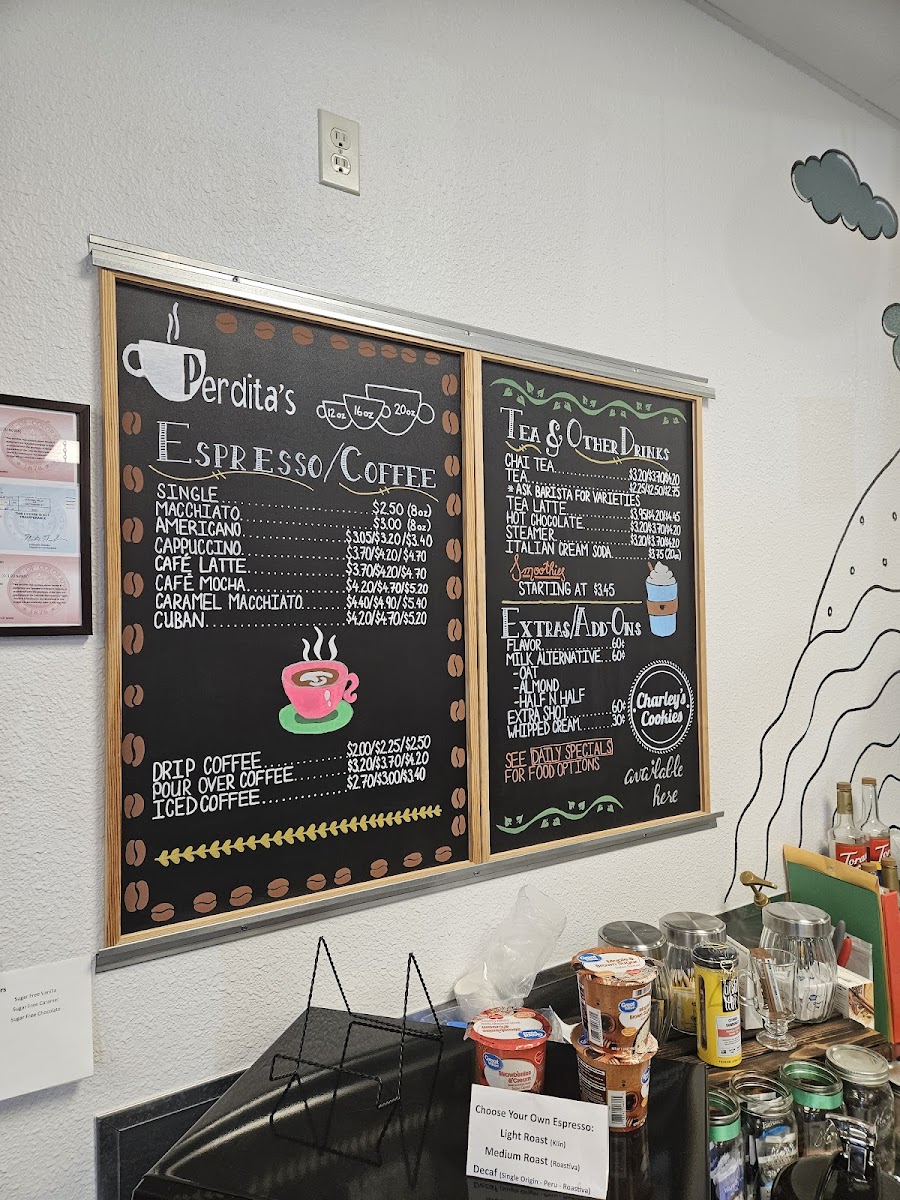 Perdita's
12oz 16oz 20oz
ESPRESSO/COFFEE
SINGLE..........$2.50 (8oz)
MACCHIATO..........$3.00 (8oz)
AMERICANO..........$3.05/$3.20/$3.40
CAPPUCCINO..........$3.70/$4.20/$4.70
CAFÉ LATTE..........$3.70/$4.20/$4.70
CAFÉ MOCHA..........$4.20/$4.70/$5.20
CARAMEL MACCHIATO......$4.40/$4.90/$5.40
CUBAN..........$4.20/$4.70/$5.20
DRIP COFFEE..........$2.00/$2.25/$2.50
POUR OVER COFFEE..........$3.20/$3.70/$4.20
ICED COFFEE..........$2.70/$3.00/$3.40
TEA & OTHER DRINKS
CHAI TEA..........$3.20/$3.70/$4.20
TEA..........$2.25/$2.50/$2.75
* ASK BARISTA FOR VARIETIES
TEA LATTE..........$3.95/$4.20/$4.45
HOT CHOCOLATE..........$3.20/$3.70/$4.20
STEAMER..........$3.20/$3.70/$4.20
ITALIAN CREAM SODA..........$3.75 (20oz)
Smoothies
STARTING AT $3.45
EXTRAS/ADD-ONS
FLAVOR..........60¢
MILK ALTERNATIVE...60¢
-OAT
-ALMOND
-HALF N HALF
EXTRA SHOT..........60¢
WHIPPED CREAM.......30¢
SEE DAILY SPECIALS
FOR FOOD OPTIONS
Charley's
Cookies
available
here
Sugar Free Vanilla
Sugar Free Caramel
Sugar Free Chocolate
Maple &
Brown Sugar
Great Value
Great Value
Choose Your Own Espresso:
Light Roast (Kiln)
Medium Roast (Roastiva)
Decaf (Single Origin - Peru - Roastiva)